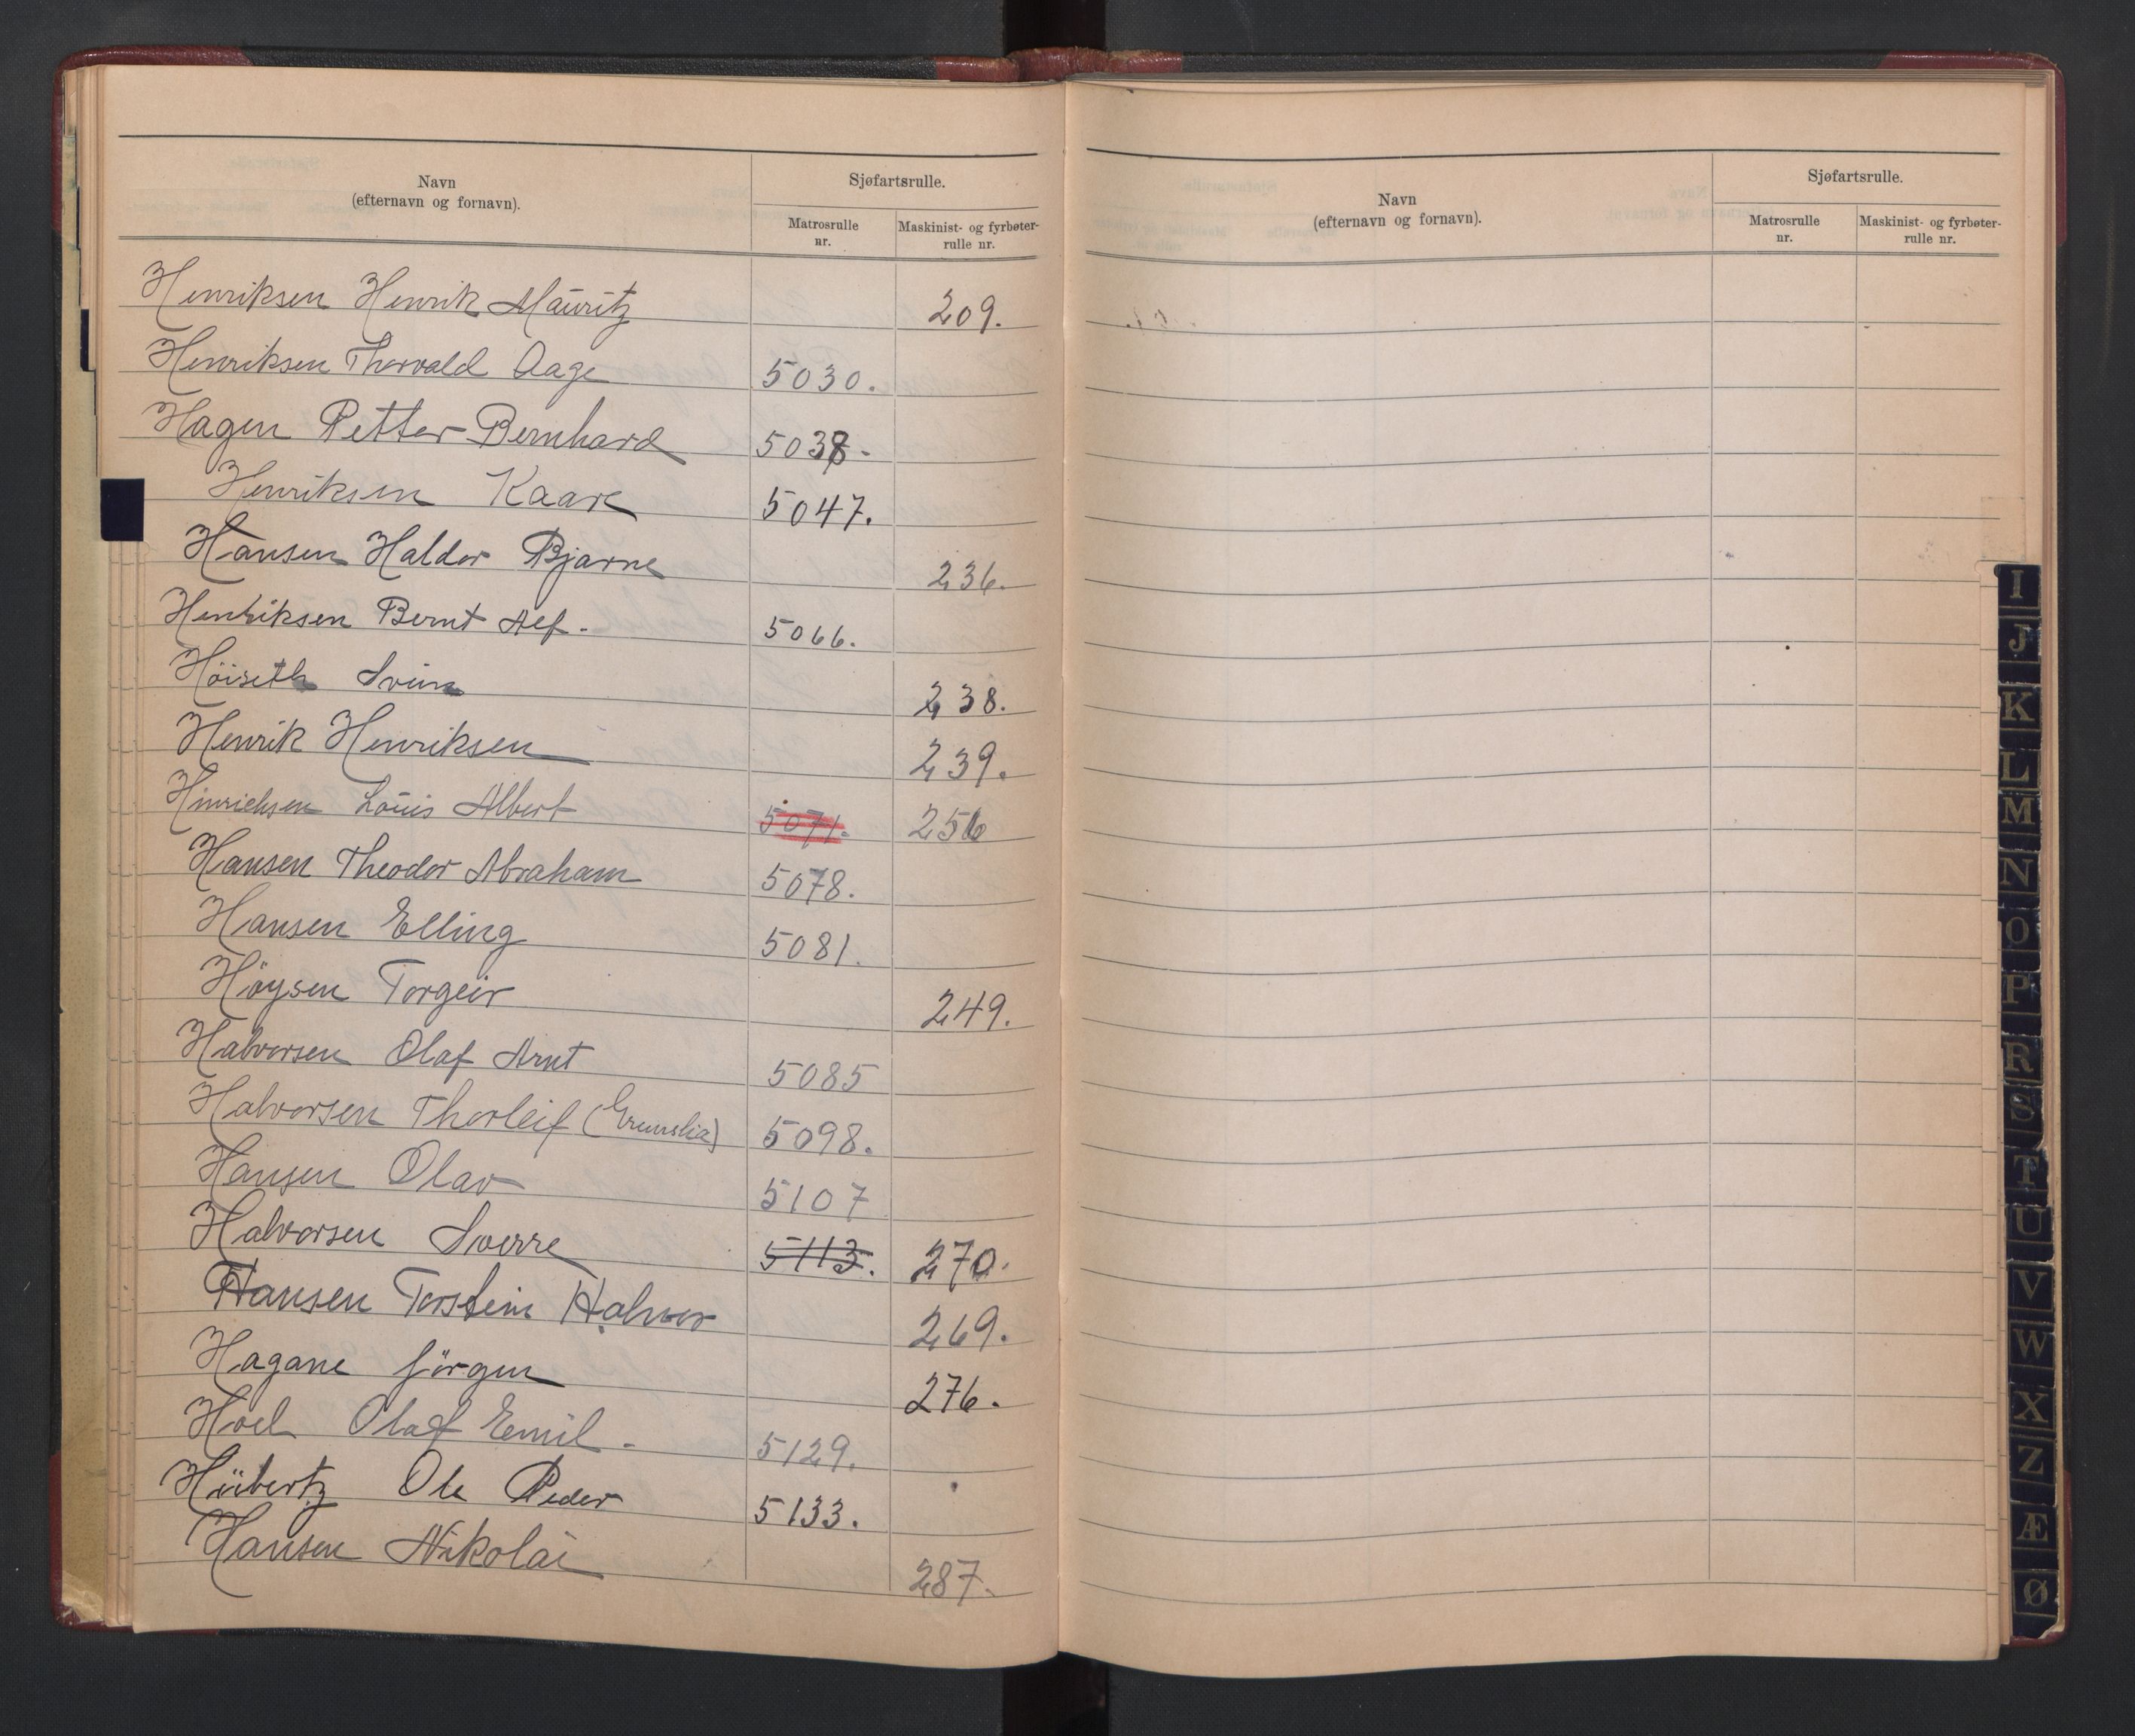 Navn
(efternavn og fornavn).
Sjøfartsrulle.
Matrosrulle
nr.
Maskinist- og fyrbøter-
rulle nr.
Henriksen Henrik Mauritz 209.
Henriksen Thorvald Aage 5030.
Hagen Petter Bernhard 5038.
Henriksen Kaare 5047.
Hansen Haldor Bjarne 236.
Henriksen Bernt Alf. 5066.
Höiseth Svein 238.
Henrik Henriksen 239.
Hinrichsen Louis Albert 5071. 256
Hansen Theodor Abraham 5078.
Hansen Elling 5081.
Höysen Torgeir 249.
Halvorsen Olaf Arnt 5085
Halvorsen Thorleif 5098.
Hansen Olav 5107
Halvorsen Sverre 5113. 270.
Hansen Torstein Halvor 269.
Hagane Jörgen 276.
Hoel Olaf Emil - 5129.
Hübertz Ole Peder 5133.
Hansen Nikolai 287.
Navn
(efternavn og fornavn).
Sjøfartsrulle.
Matrosrulle
nr.
Maskinist- og fyrbøter-
rulle nr.
I
J
K
L
M
N
O
P
R
S
T
U
V
W
X
Z
Æ
Ø